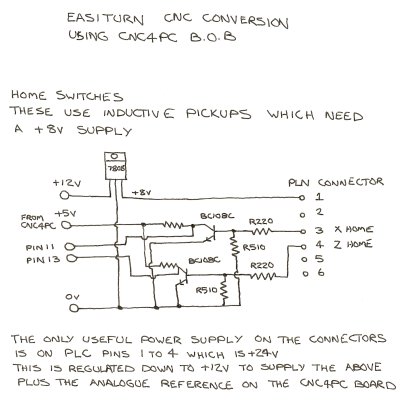 EASITURN CNC CONVERSION
USING CNC4PC B.O.B
HOME SWITCHES
THESE USE INDUCTIVE PICKUPS WHICH NEED
A +8V SUPPLY
7808
+12V
+8V
PLN CONNECTOR
1
+5V
2
FROM
CNC4PC
BC108C
R220
3 X HOME
PIN 11
R510
4 Z HOME
PIN 13
BC108C
R220
5
6
R510
0V
THE ONLY USEFUL POWER SUPPLY ON THE CONNECTORS
IS ON PLC PINS 1 TO 4 WHICH IS +24V
THIS IS REGULATED DOWN TO +12V TO SUPPLY THE ABOVE
PLUS THE ANALOGUE REFERENCE ON THE CNC4PC BOARD